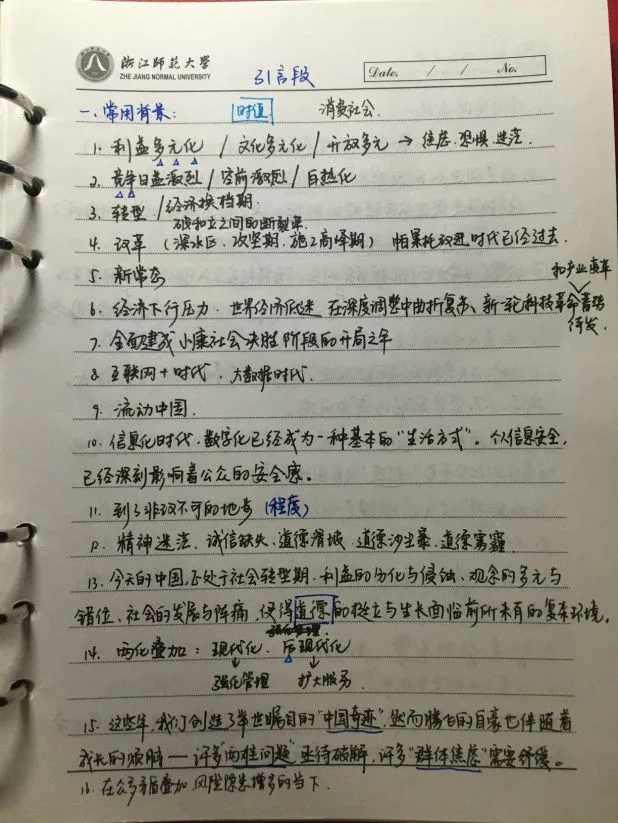 浙江师范大学
ZHE JIANG NORMAL UNIVERSITY
引言段
Date. / / No.
一、常用背景: 时值 消费社会.
1. 利益多元化 / 文化多元化 / 开放多元 → 焦虑.恐惧.迷茫.
2. 竞争日益激烈 / 空前激烈 / 白热化
3. 转型 / 经济换档期.
破和立之间的断裂带.
4. 改革 (深水区.攻坚期.施工高峰期) 帕累托改进时代已经过去.
5. 新常态
和产业变革
6. 经济下行压力.世界经济低迷 在深度调整中曲折复苏、新一轮科技革命蓄势
待发.
7. 全面建成小康社会决胜阶段的开局之年
8. 互联网+时代.大数据时代.
9. 流动中国.
10. 信息化时代.数字化已经成为一种基本的"生活方式"。个人信息安全,
已经深刻影响着公众的安全感。
11. 到了非改不可的地步 (程度)
12. 精神迷茫、诚信缺失、道德滑坡、道德沙尘暴、道德雾霾
13. 今天的中国,正处于社会转型期.利益的分化与侵蚀、观念的多元与
错位、社会的发展与阵痛,使得道德的挺立与生长面临前所未有的复杂环境。
14. 两化叠加: 现代化、后现代化
↓ ↓
强化管理 扩大服务.
15. 这些年,我们创造了举世瞩目的"中国奇迹",然而腾飞的自豪也伴随着
成长的烦恼——许多"两难问题"亟待破解,许多"群体焦虑"需要舒缓。
16. 在众多矛盾叠加.风险隐患增多的当下.